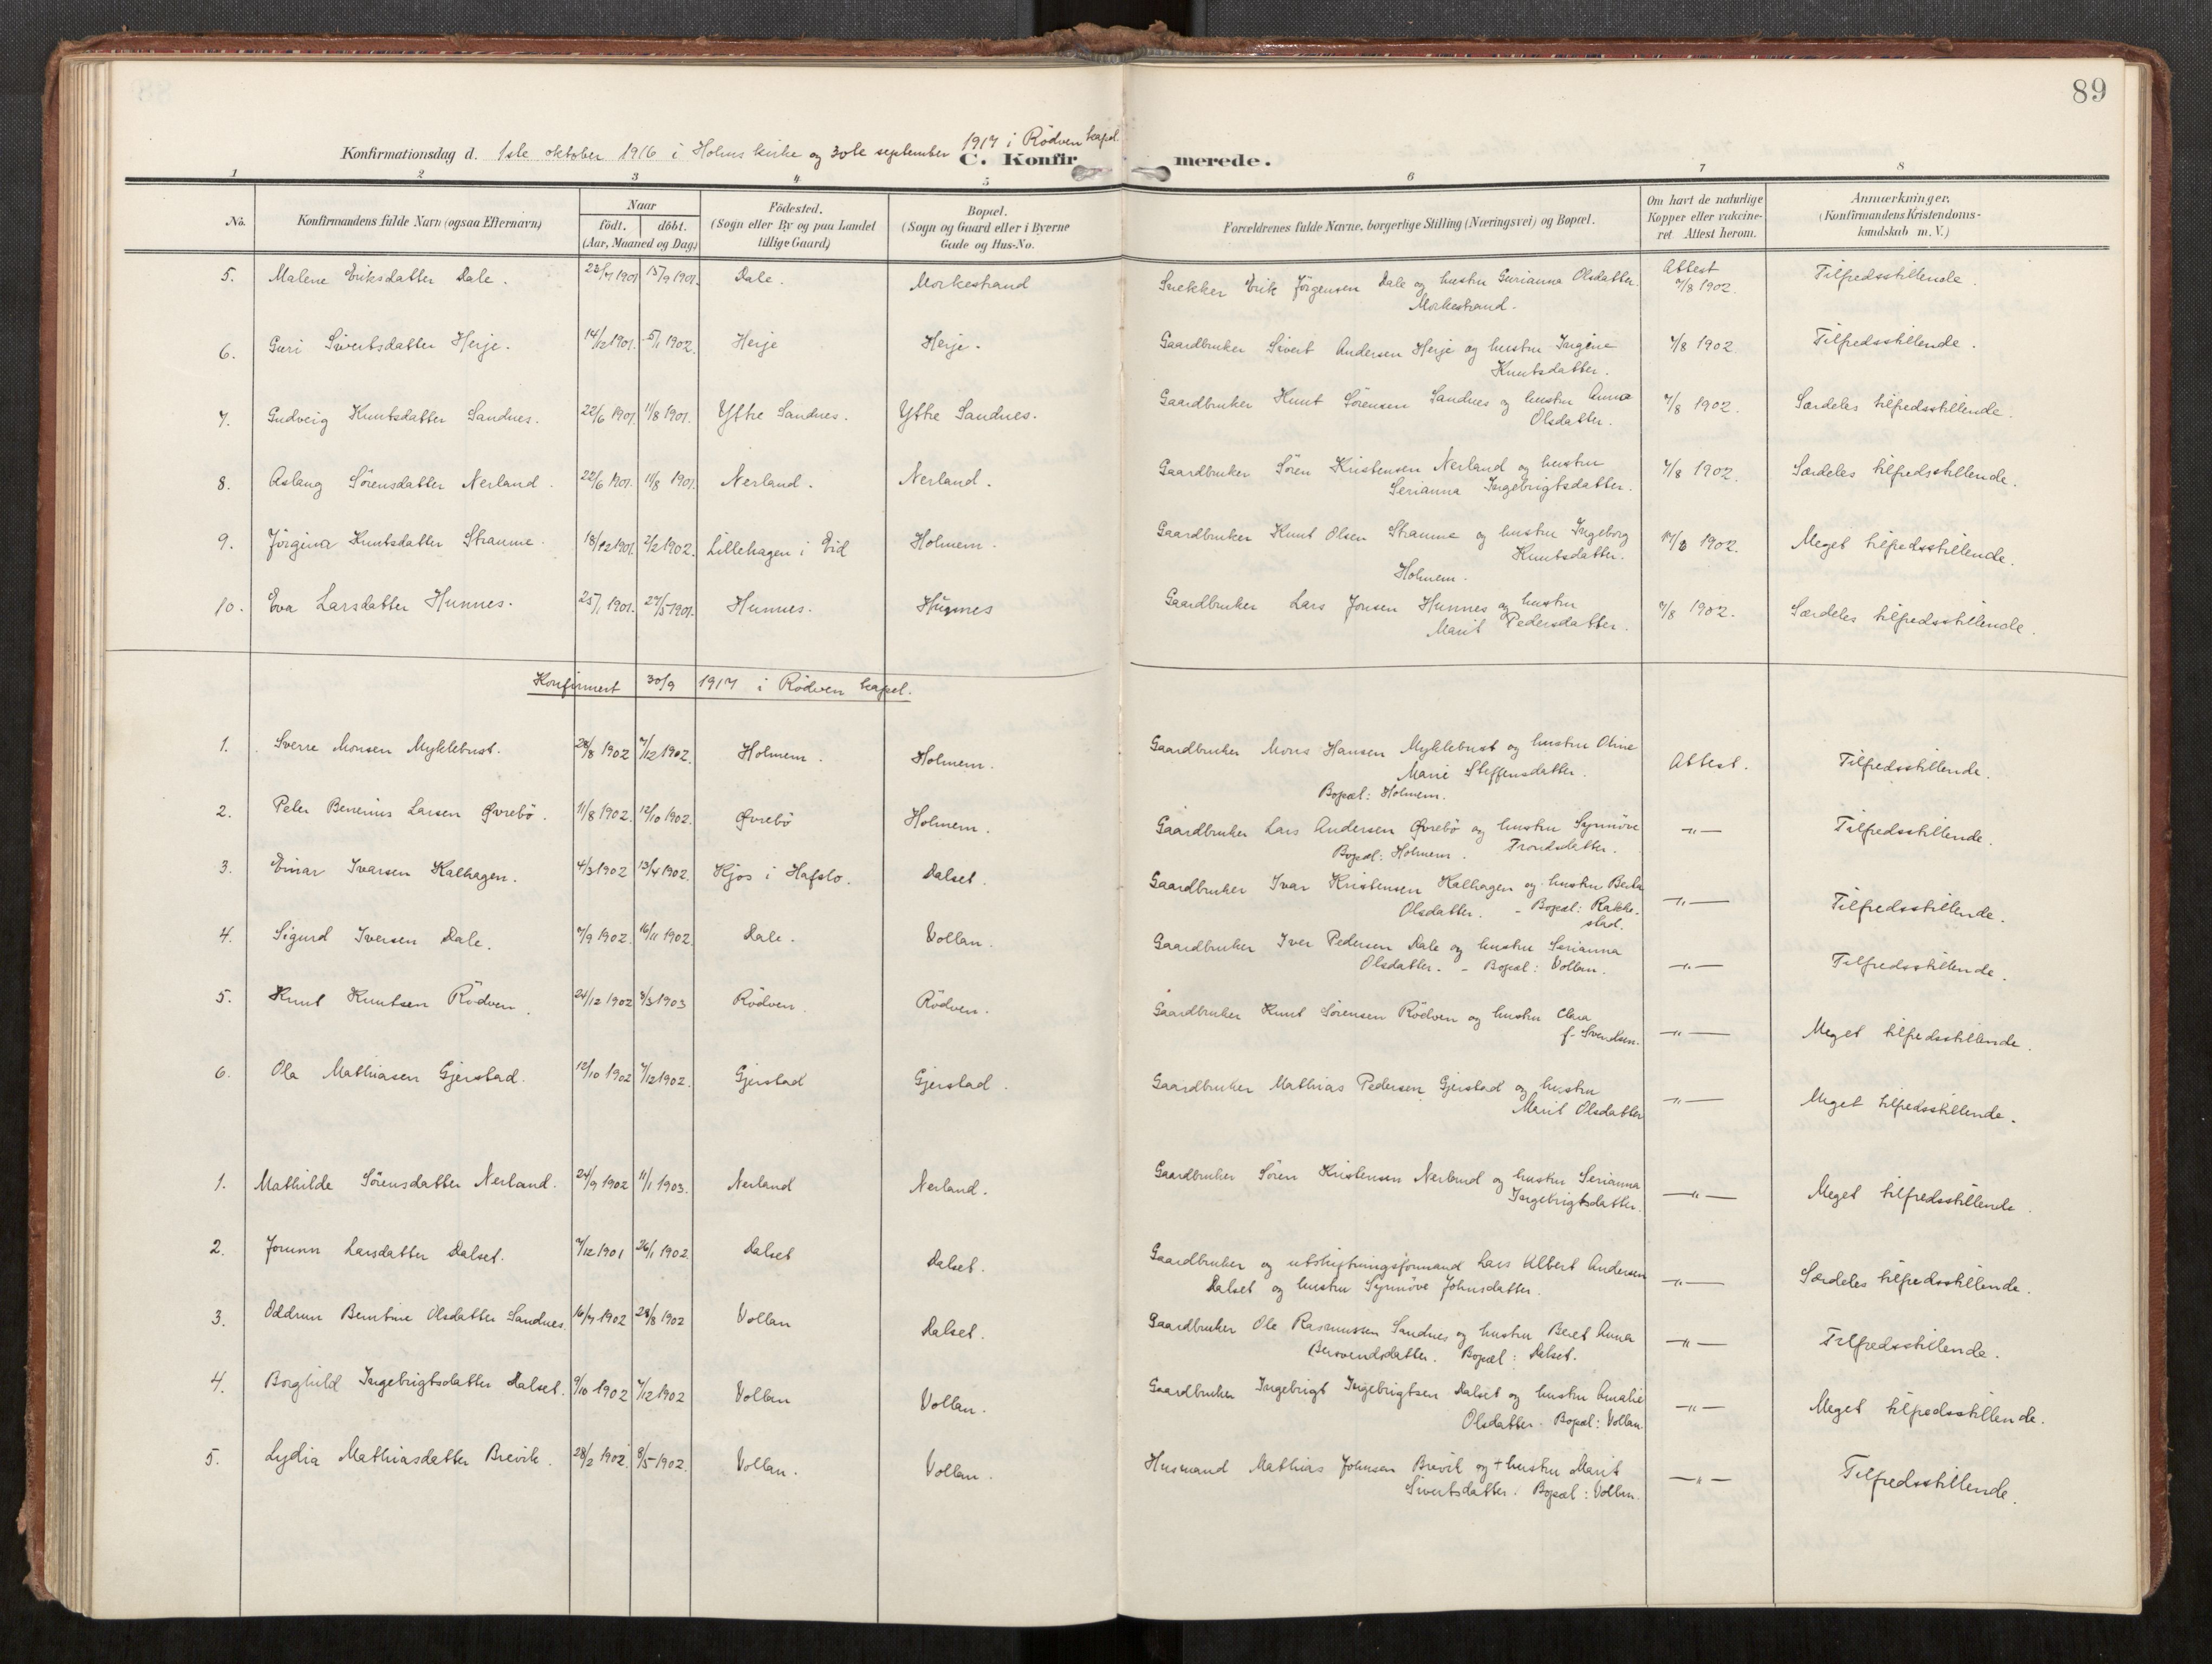 89
Konfirmationsdag d. 1ste oktober 1916 i Holms kirke og 30te september 1917 i Rödven kapel.
C. Konfirmerede.
1 2 3 4 5 6 7 8
No. Konfirmandens fulde Navn (ogsaa Efternavn) Naar födt. döbt. (Aar, Maaned og Dag) Födested. (Sogn eller By og paa Landet tillige Gaard) Bopæl. (Sogn og Gaard eller i Byerne Gade og Hus-No. Forældrenes fulde Navne, borgerlige Stilling (Næringsvei) og Bopæl. Om havt de naturlige Kopper eller vakcineret Attest herom. Anmærkninger. (Konfirmandens Kristendomskundskab m. V.)
5. Malene Eriksdatter Dale. 23/7 1901 15/9 1901. Dale. Morkestrand Snekker Erik Jörgensen Dale og hustru Gurianna Olsdatter. Attest Tilfredsstillende.
Morkestrand. 7/8 1902.
6. Guri Sivertsdatter Herje. 14/12 1901. 5/1 1902. Herje Herje. Gaardbruker Sivert Andersen Herje og hustru Ingine 7/8 1902. Tilfredsstillende.
Knutsdatter.
7. Gudveig Knutsdatter Sandnes. 22/6 1901 11/8 1901. Ytre Sandnes. Ytre Sandnes. Gaardbruker Knut Sörensen Sandnes og hustru Anna 7/8 1902. Særdeles tilfredsstillende.
Olsdatter.
8. Aslaug Sörensdatter Nerland. 22/6 1901. 11/8 1901. Nerland. Nerland. Gaardbruker Sören Kristensen Nerland og hustru 7/8 1902. Særdeles tilfredsstillende.
Serianna Ingebrigtsdatter.
9. Jörgina Knutsdatter Straume. 18/12 1901. 2/2 1902. Lillehagen i Eid Holmem. Gaardbruker Knut Olsen Straume og hustru Ingeborg 1902. Meget tilfredsstillende.
Knutsdatter.
Holmem.
10. Eva Larsdatter Hunnes. 25/1 1901. 27/5 1901. Hunnes. Hunnes Gaardbruker Lars Jonsen Hunnes og hustru 7/8 1902. Særdeles tilfredsstillende.
Marit Pedersdatter.
Konfirmert 30/9 1917 i Rödven kapel.
1. Sverre Monsen Myklebust. 28/8 1902 7/12 1902. Holmem. Holmem. Gaardbruker Mons Hansen Myklebust og hustru Oline Attest. Tilfredsstillende.
Marie Steffensdatter.
Bopæl: Holmem.
2. Peter Benerius Larsen Øvrebö. 11/8 1902. 12/10 1902. Øvrebö Holmem. Gaardbruker Lars Andersen Øvrebö og hustru Synnöve —"— Tilfredsstillende.
Bopæl: Holmem. Trondsdatter.
3. Einar Ivarsen Kalhagen. 4/3 1902 13/4 1902. Kjos i Hafslo. Dalset. Gaardbruker Ivar Kristensen Kalhagen og hustru Berta —"— Tilfredsstillende.
Olsdatter. - Bopæl: Rakke-
stad.
4. Sigurd Iversen Dale. 7/9 1902. 16/11 1902. Dale. Vollan. Gaardbruker Iver Pedersen Dale og hustru Serianna —"— Tilfredsstillende.
Olsdatter. - Bopæl: Vollan.
5. Knut Knutsen Rödven. 24/12 1902 8/3 1903 Rödven. Rödven. Gaardbruker Knut Sörensen Rödven og hustru Clara —"— Meget tilfredsstillende.
f. Svendsen.
6. Ola Mathiasen Gjerstad. 12/10 1902 7/12 1902. Gjerstad Gjerstad. Gaardbruker Mathias Pedersen Gjerstad og hustru —"— Meget tilfredsstillende.
Marit Olsdatter
1. Mathilde Sörensdatter Nerland. 24/9 1902 11/1 1903. Nerland Nerland. Gaardbruker Sören Kristensen Nerland og hustru Serianna —"— Meget tilfredsstillende.
Ingebrigtsdatter.
2. Jorunn Larsdatter Dalset. 7/12 1901 26/1 1902. Dalset Dalset. Gaardbruker og utskiftningsformand Lars Albert Andersen —"— Særdeles tilfredsstillende.
Dalset og hustru Synnöve Johnsdatter.
3. Oddrun Berntine Olsdatter Sandnes. 16/7 1902 24/8 1902 Vollan Dalset. Gaardbruker Ole Rasmussen Sandnes og hustru Beret Anna —"— Tilfredsstillende.
Bersvendsdatter. Bopæl: Dalset.
4. Borghild Ingebrigtsdatter Dalset. 9/10 1902 7/12 1902 Vollan Vollan. Gaardbruker Ingebrigt Ingebrigtsen Dalset og hustru Amalie —"— Meget tilfredsstillende.
Olsdatter. Bopæl: Vollan.
5. Lydia Mathiasdatter Brevik. 28/2 1902. 8/5 1902. Vollan. Vollan. Husmand Mathias Johnsen Brevik og + hustru Marit —"— Tilfredsstillende.
Sivertsdatter. Bopæl: Vollan.